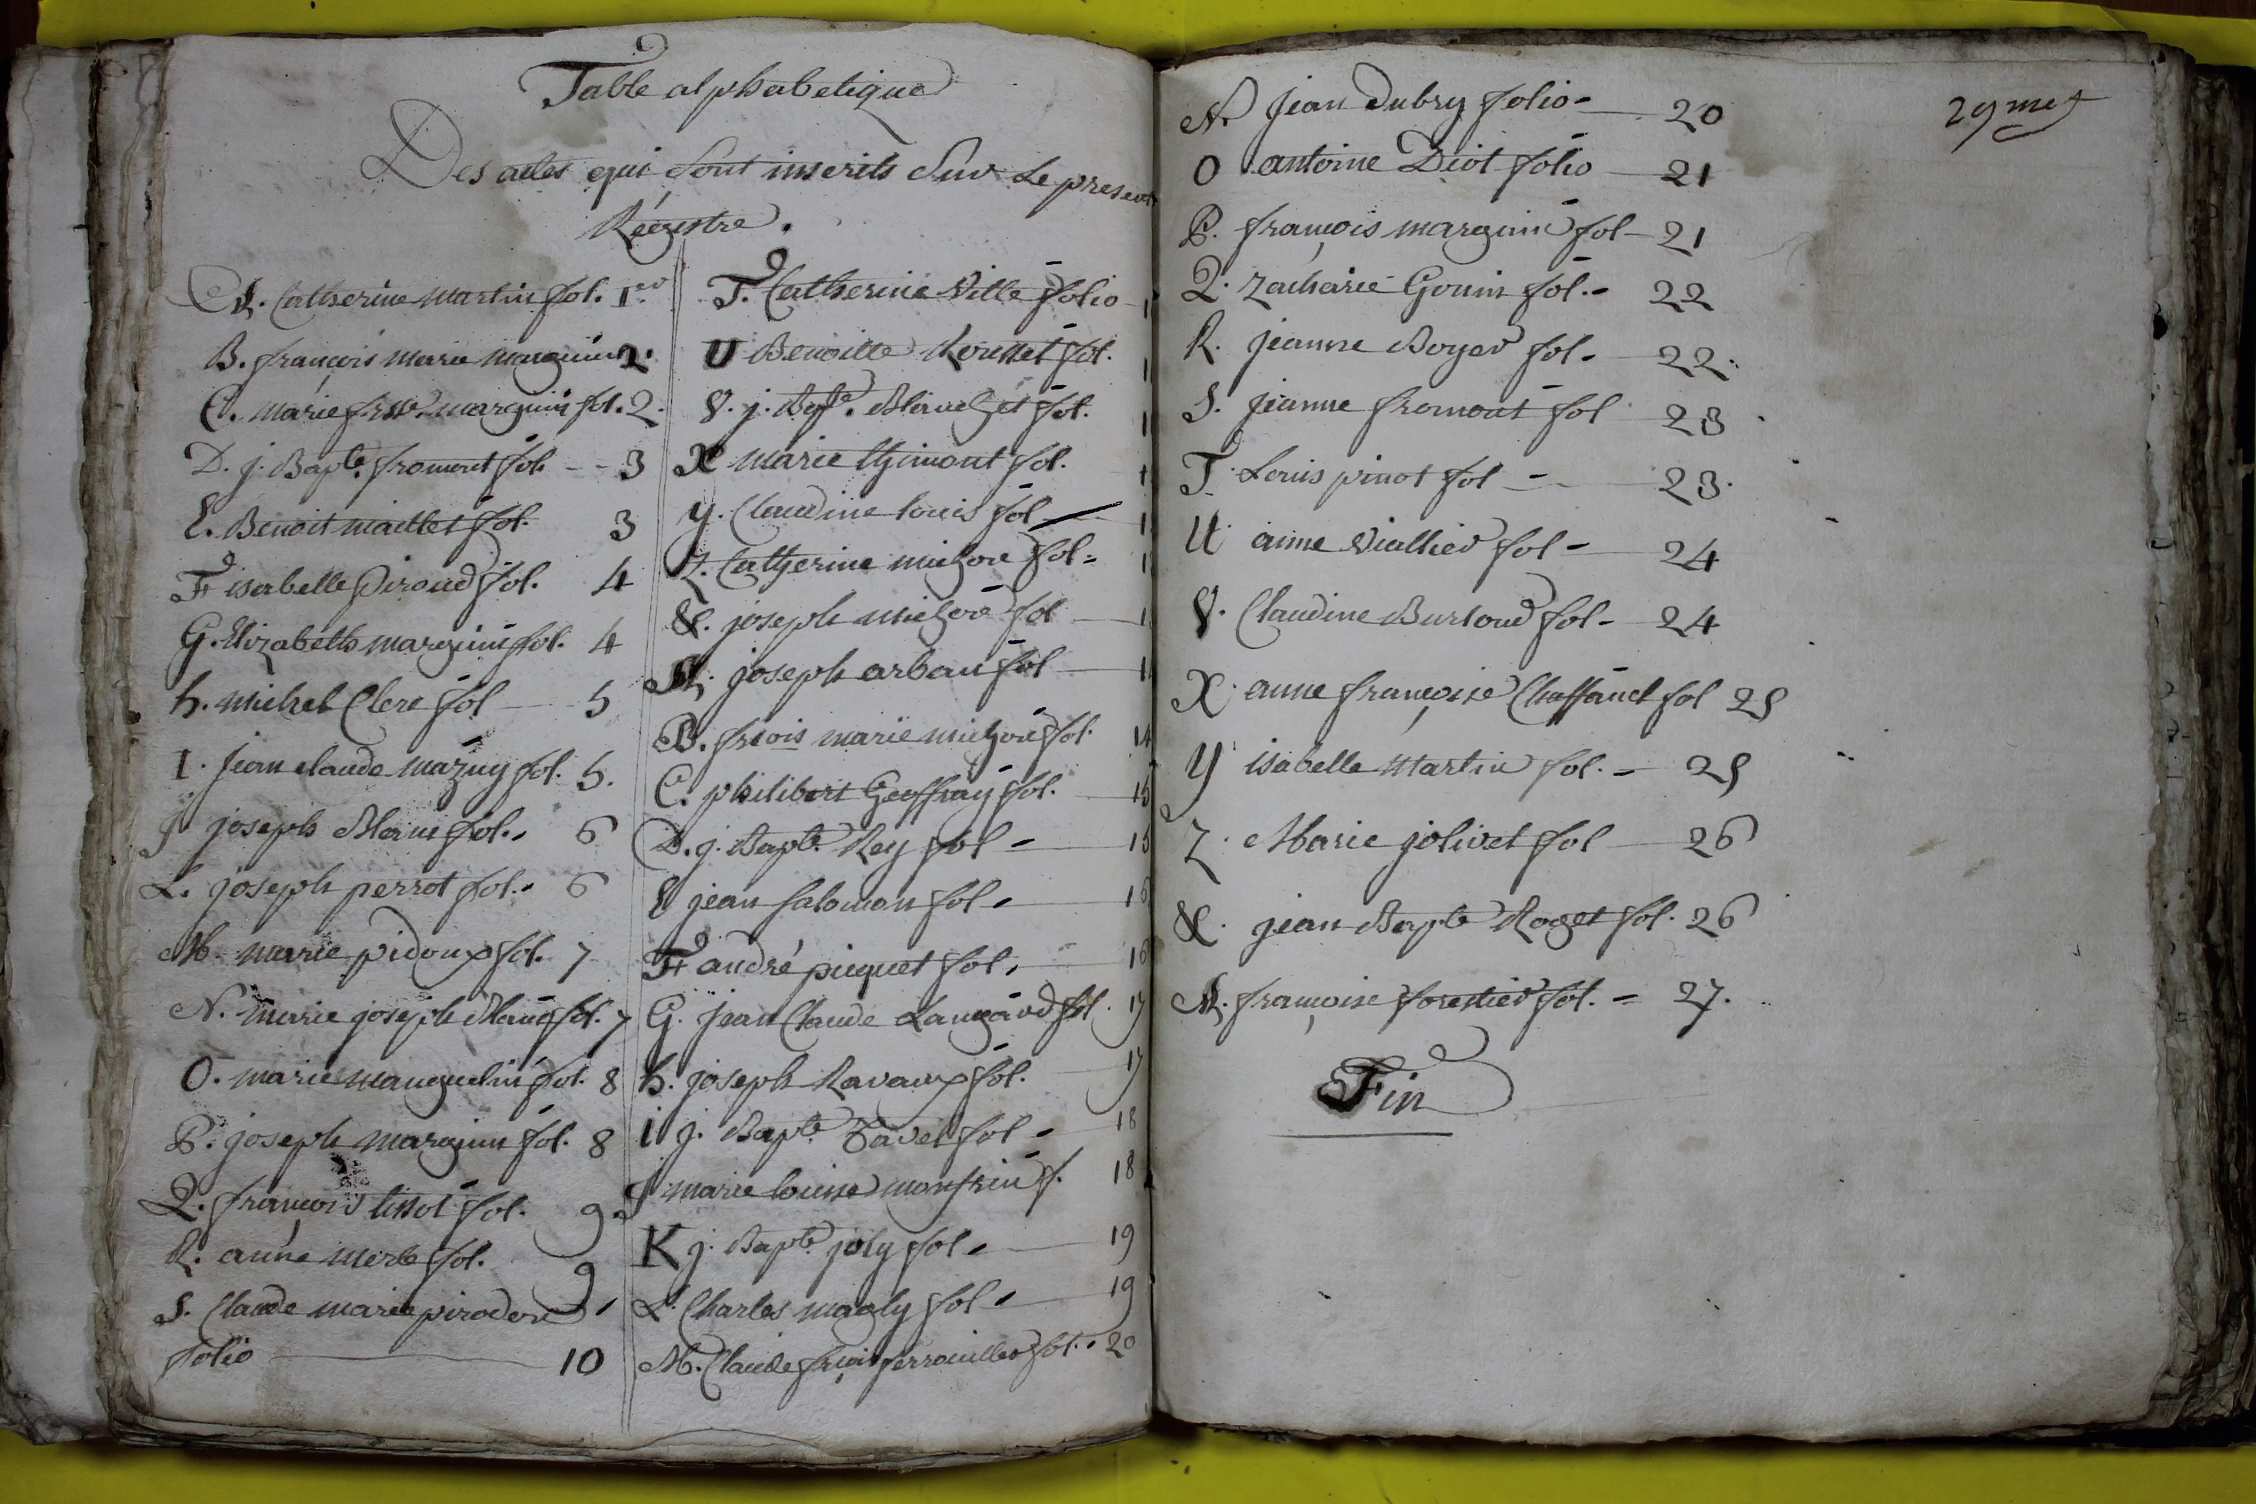 Table alphabetique
Des actes qui sont inscrits sur Le present
Régistre.
A. Catherine Martin fol. 1er
B. françois marie marguin 2.
C. marie frse marguin fol. 2.
D. j. Bapte. froment fol. 3
E. Benoit maillet fol. 3
F isabelle Piroud fol. 4
G. Elizabeth marguin fol. 4
h. michel Clerc fol 5
I. jean claude mazuy fol. 5.
J joseph Blanc fol. 6
L. joseph perrot fol. 6
M. marie pidoux fol. 7
N. marie joseph fol. 7
O. marie manguelin fol. 8
P. joseph marguin fol. 8
Q. françois tissot fol. 9
R. anne merle fol. 9
S. Claude marie
folio 10
T. Catherine Ville folio 1
U Benoitte Rousset fol. 1
V. j. Bpte. Blanchet fol. 1
X marie thimont fol. 1
Y. Claudine louis fol 1
Z. Catherine michon fol. 1
&. joseph michon fol 1
A. joseph arban fol 1
B. frçois marie michon fol. 14
C. philibert Geoffray fol. 15
D. j. Bapte. Rey fol 15
E jean salomon fol. 16
F andré piquet fol. 16
G. jean Claude Laugard fol. 17
h. joseph Ravaux fol. 17
i j. Bapte. Tavel fol 18
J marie louise monfrin f. 18
K j. Bapte. joly fol. 19
L. Charles magly fol. 19
M. Claude frçois ferrouillet fol. 20
N. jean Dubry folio 20
O antoine Diot folio 21
P. françois marguin fol 21
Q. Zacharie Gonin fol. 22
R. jeanne Boyer fol. 22.
S. jeanne fromont fol 23
T. Louis pinot fol 23.
U anne Viallier fol 24
V. Claudine Burtoud fol 24
X. anne françoise Chaffanel fol 25
Y isabelle Martin fol. 25
Z. Marie jolivet fol 26
&. jean Bapte Roget fol. 26
A. françoise forestier fol. 27.
Fin